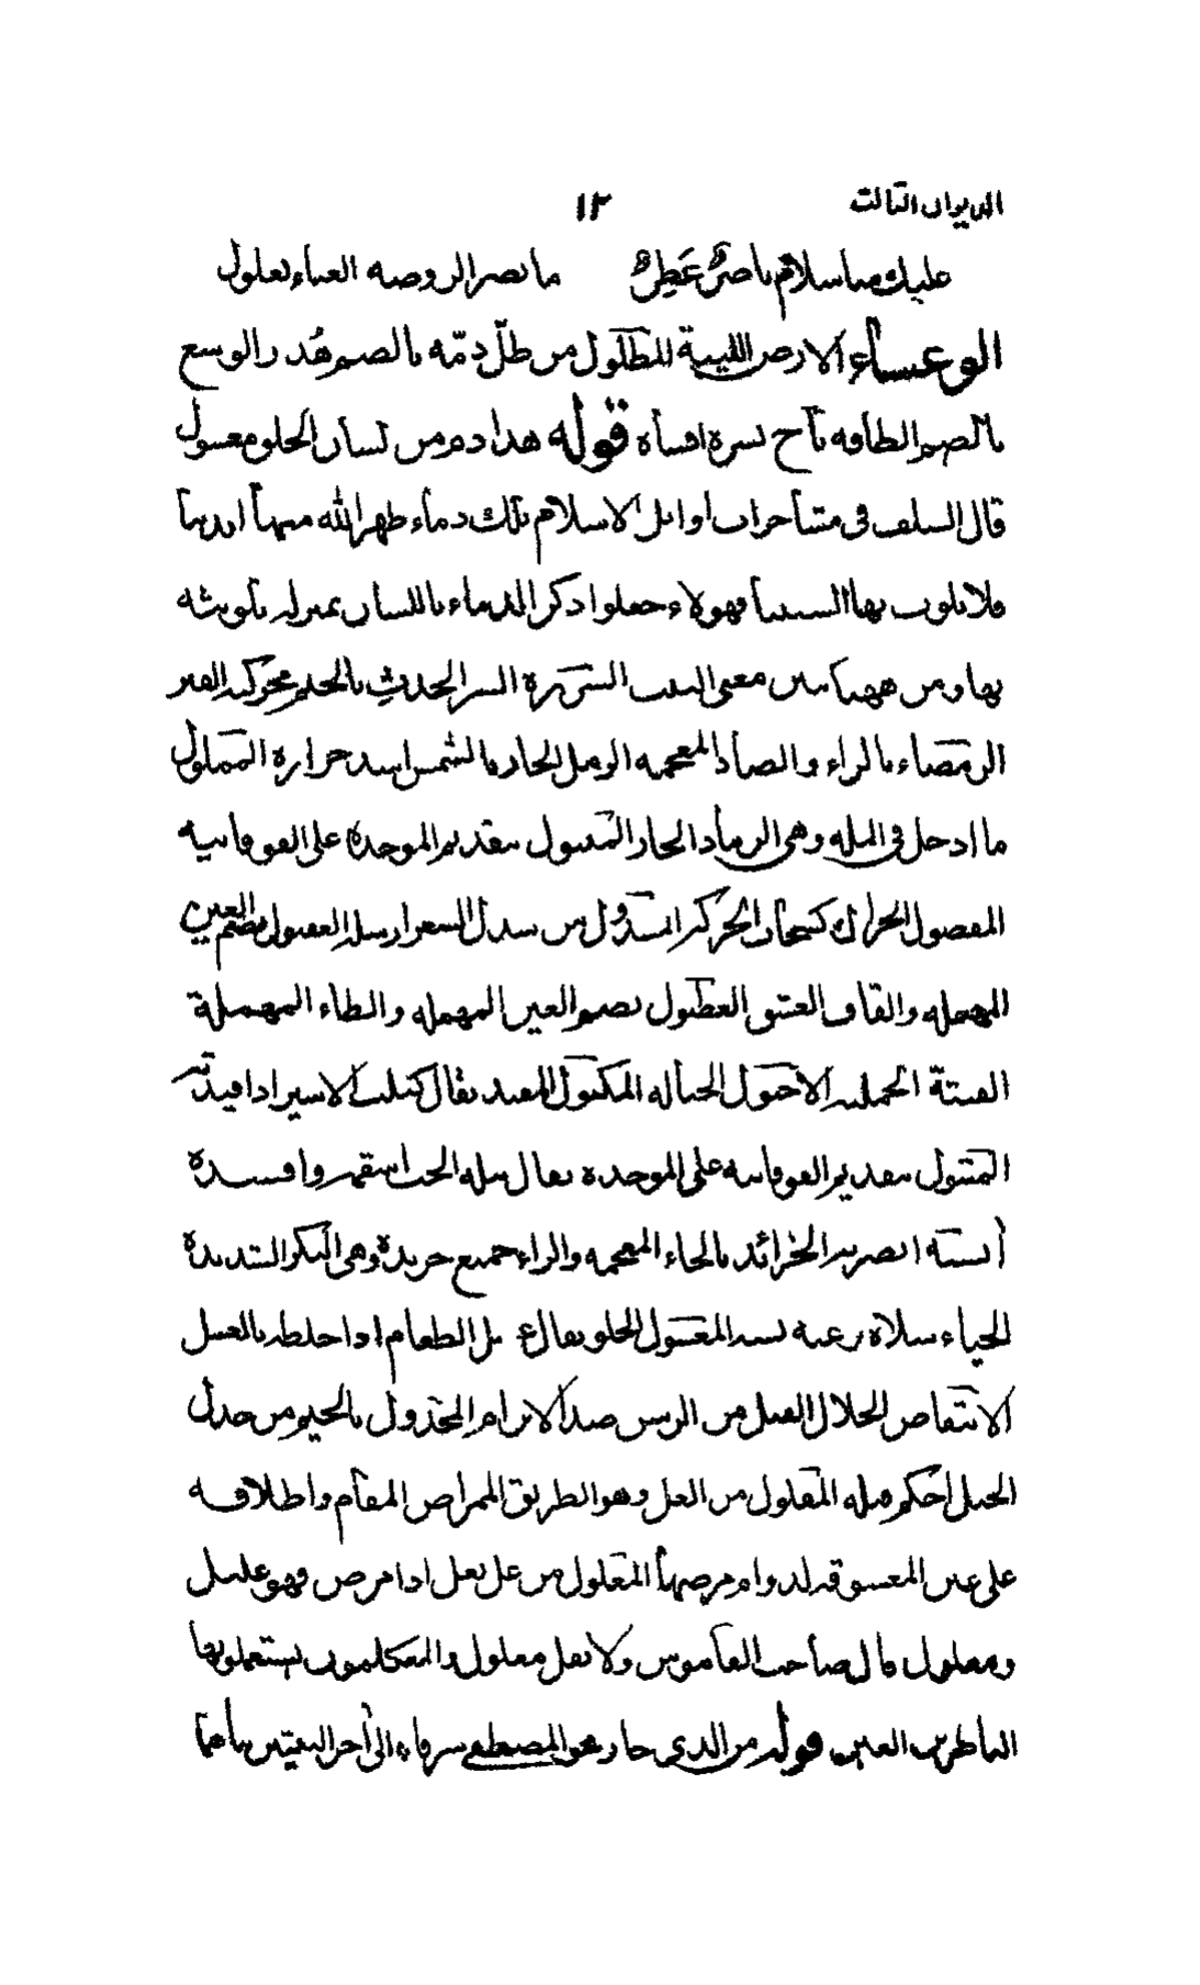 الديوان الثالث
١٢
عليك منا سلام ناضر عطر ما نضر الروضة الغناء بهلول
الوعساء الارض اللينة المطلول من طلّ دمّه بالضم هُدر الوسع
بالضم الطاقة باح بسره افشاه قوله هدا دم من لسان الحلو معسول
قال السلف فى مشاجرات اوائل الاسلام تلك دماء طهر الله منها ايدينا
فلا نلوث بها السنتنا فهولاء جعلوا ذكر الدماء باللسان بمنزلة تلويثه
بها ومن ههنا تبين معنى البيت الشزرة السر الحديث بالحلم محركة
الرمضاء بالراء والضاد المعجمة الرمل الحار بالشمس اشد حرارة المملول
ما ادخل فى المله وهى الرماد الحار المتبول بتقديم الموحدة على الفوقانيه
المفصول الحراك كسحاب الحركة المسدول من سدل الشعر ارسله العقبول بضم العين
المهمله والقاف العشق العطبول بضم العين المهمله والطاء المهملة
الفتية الجميلة الاحبول الحباله المكبول المقيد يقال كبلت الاسير اذا قيدته
المتبول بتقديم الفوقانيه على الموحدة يقال تبله الحب اسقمه وافسده
انسته ابصرته الخرائد بالخاء المعجمه والراء جمع خريدة وهى البكر الشديدة
الحياء سلاه رغبة لسد المعسول الحلو يقال عسل الطعام اذا خلطه بالعسل
الانتقاض انحلال الفتل من الريس ضد الابرام المجذول بالجيم من جدل
الحبل احكم فتله المقلول من العل وهو الطريق الممراض المقام واطلاقه
على عين المعشوقه لدوام مرضها المعلول من عل يعل اذا مرض فهو عليل
ومعلول قال صاحب القاموس ولا يقل معلول والمتكلمون يستعملونها
الناظرين العين قوله من الذى جاوز المصطفى شرفا الى آخر البيتين